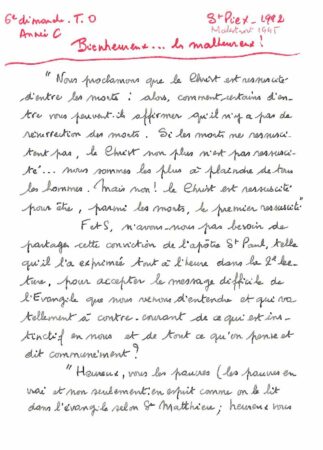 6e dimanche. T. O
St Piex - 1982
Année C
Malestroit 1995
Bienheureux... les malheureux !
"Nous proclamons que le Christ est ressuscité
d'entre les morts : alors, comment certains d'en-
tre vous peuvent-ils affirmer qu'il n'y a pas de
résurrection des morts. Si les morts ne ressusci-
tent pas, le Christ non plus n'est pas ressusci-
té... nous sommes les plus à plaindre de tous
les hommes. Mais non ! le Christ est ressuscité
pour être, parmi les morts, le premier ressuscité"
F et S, n'avons-nous pas besoin de
partager cette conviction de l'apôtre St Paul, telle
qu'il l'a exprimée tout à l'heure dans la 2e lec-
ture, pour accepter le message difficile de
l'Evangile que nous venons d'entendre et qui va
tellement à contre-courant de ce qui est ins-
tinctif en nous et de tout ce qu'on pense et
dit communément ?
"Heureux, vous les pauvres (les pauvres en
vrai et non seulement en esprit comme on le lit
dans l'évangile selon St Matthieu ; heureux vous